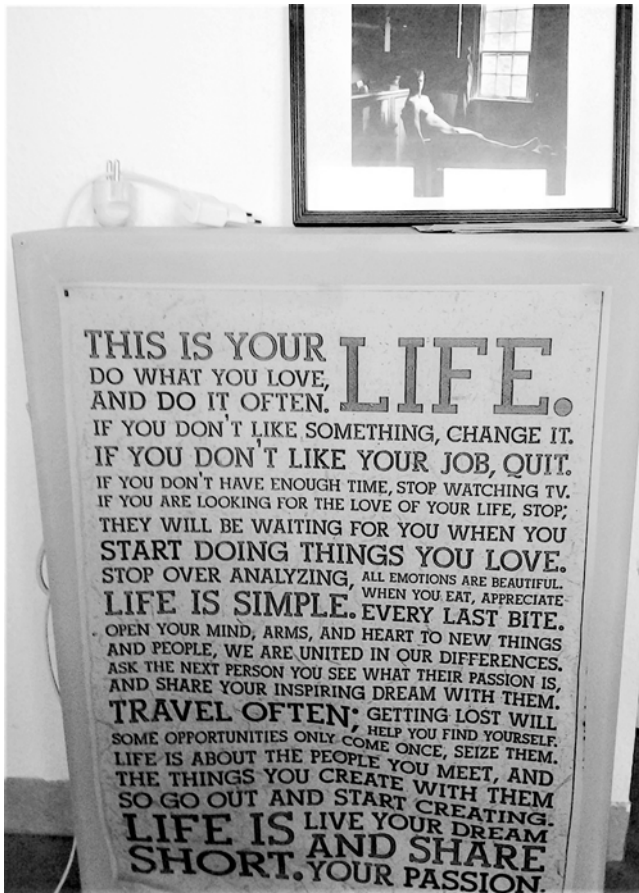 THIS IS YOUR LIFE.
DO WHAT YOU LOVE,
AND DO IT OFTEN.
IF YOU DON'T LIKE SOMETHING, CHANGE IT.
IF YOU DON'T LIKE YOUR JOB, QUIT.
IF YOU DON'T HAVE ENOUGH TIME, STOP WATCHING TV.
IF YOU ARE LOOKING FOR THE LOVE OF YOUR LIFE, STOP;
THEY WILL BE WAITING FOR YOU WHEN YOU
START DOING THINGS YOU LOVE.
STOP OVER ANALYZING,
LIFE IS SIMPLE.
ALL EMOTIONS ARE BEAUTIFUL.
WHEN YOU EAT, APPRECIATE
EVERY LAST BITE.
OPEN YOUR MIND, ARMS, AND HEART TO NEW THINGS
AND PEOPLE, WE ARE UNITED IN OUR DIFFERENCES.
ASK THE NEXT PERSON YOU SEE WHAT THEIR PASSION IS,
AND SHARE YOUR INSPIRING DREAM WITH THEM.
TRAVEL OFTEN; GETTING LOST WILL
HELP YOU FIND YOURSELF.
SOME OPPORTUNITIES ONLY COME ONCE, SEIZE THEM.
LIFE IS ABOUT THE PEOPLE YOU MEET, AND
THE THINGS YOU CREATE WITH THEM
SO GO OUT AND START CREATING.
LIFE IS
SHORT.
LIVE YOUR DREAM
AND SHARE
YOUR PASSION